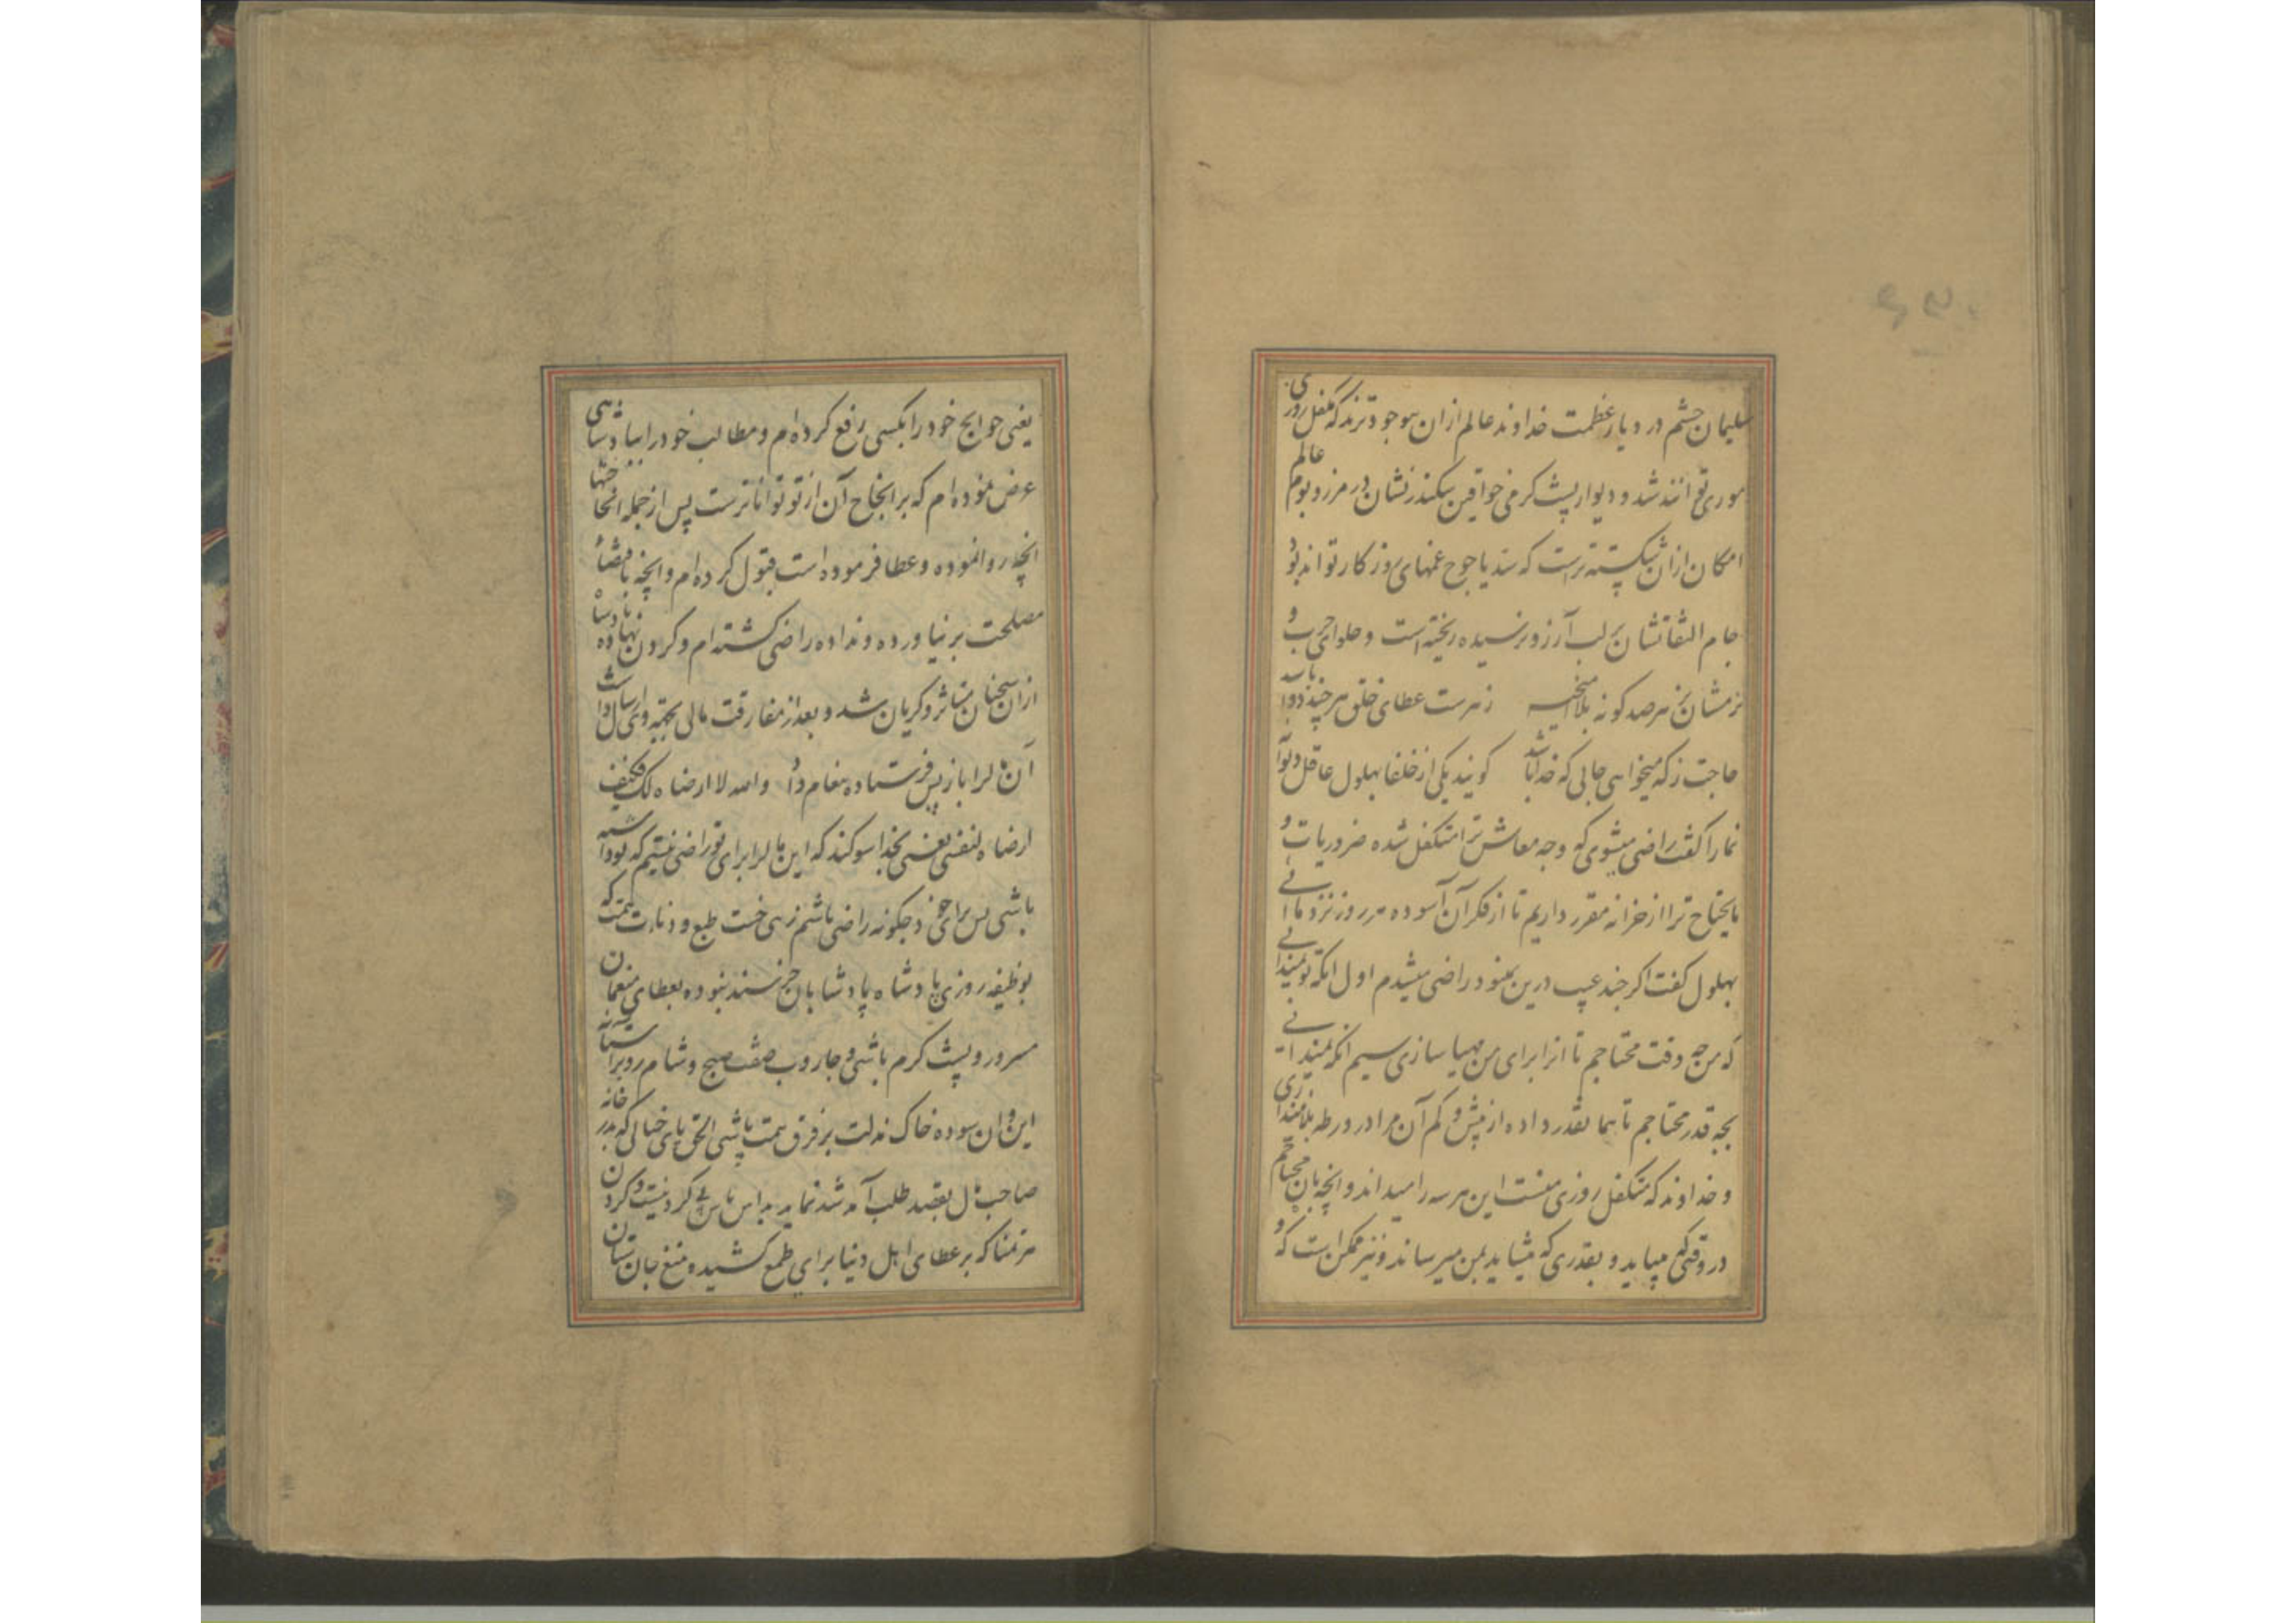 سلیمان حشم در دیار عظمت خداوند عالم ازان مور جودترند که متکفل روزی
موری توانند شد و دیوار پشت کرمی خواقین سکندر نشان در مرز و بوم عالم
امکان ازان شکسته ترست که سد یاجوج غمهای روزکار تواند بود
جام التفاتشان بر لب آرزو نرسیده ریخته است و حلوای چرب و
نرمشان بزهر صد کونه بلا آمیخته زهرست عطای خلق هر چند دوا باشد
حاجت ز که میخواهی جائی که خدا باشد کویند یکی از خلفا بهلول عاقل دیوانه
نما را کفت راضی میشوی که وجه معاش ترا متکفل شده ضروریات و
مایحتاج ترا از خزانه مقرر داریم تا از فکر آن آسوده هر روز نزد ما آئی
بهلول کفت اکر چند عیب درین نمی بود راضی میشدم اول انکه تو نمیدانی
که من چه وقت محتاجم تا انرا برای من مهیا سازی سیم انکه نمیدانی
بچه قدر محتاجم تا بهما نقدر داده از پیش و کم آن مرا در ورطه بلا نیندازی
و خداوند که متکفل روزی منست این هر سه را میداند و انچه بان محتاجم
در وقتی که میباید و بقدری که میشاید بمن میرساند و نیز ممکن است که و
یعنی حوایج خود را بکسی رفع کرده ام و مطالب خود را بپادشاهی
عرض نموده ام که بر انجاح آن از تو تواناترست پس از جمله انحاجتها
انچه روا نموده و عطا فرموده است قبول کرده ام و انچه بامضاء
مصلحت بر نیاورده و نداده راضی کشته ام و کردن نهاده پادشاه
ازان سخنان متاثر و کریان شد و بعد از مفارقت مالی بجهته وی ارسال داشت
آن مال را باز پس فرستاده پیغام داد والله لا ارضاه لک فکیف
ارضاه لنفسی یعنی بخدا سوکند که این مال را برای تو راضی نیستم که تو داشته
باشی پس برای خود چکونه راضی باشم زهی خست طبع و دنائت همت که
بوظیفه روزی پادشاه پادشاهان خرسند نبوده بعطای منعمان
مسرور و پشت کرم باشی و جاروب صفت صبح و شام رو بر آستانه
این و ان سوده خاک مذلت بر فرق همت پاشی الحق پای خیالی که بدر خانه
صاحب مال بقصد طلب آمد شد نماید
هر تمنا که بر عطای اهل دنیا برای طمع کشیده